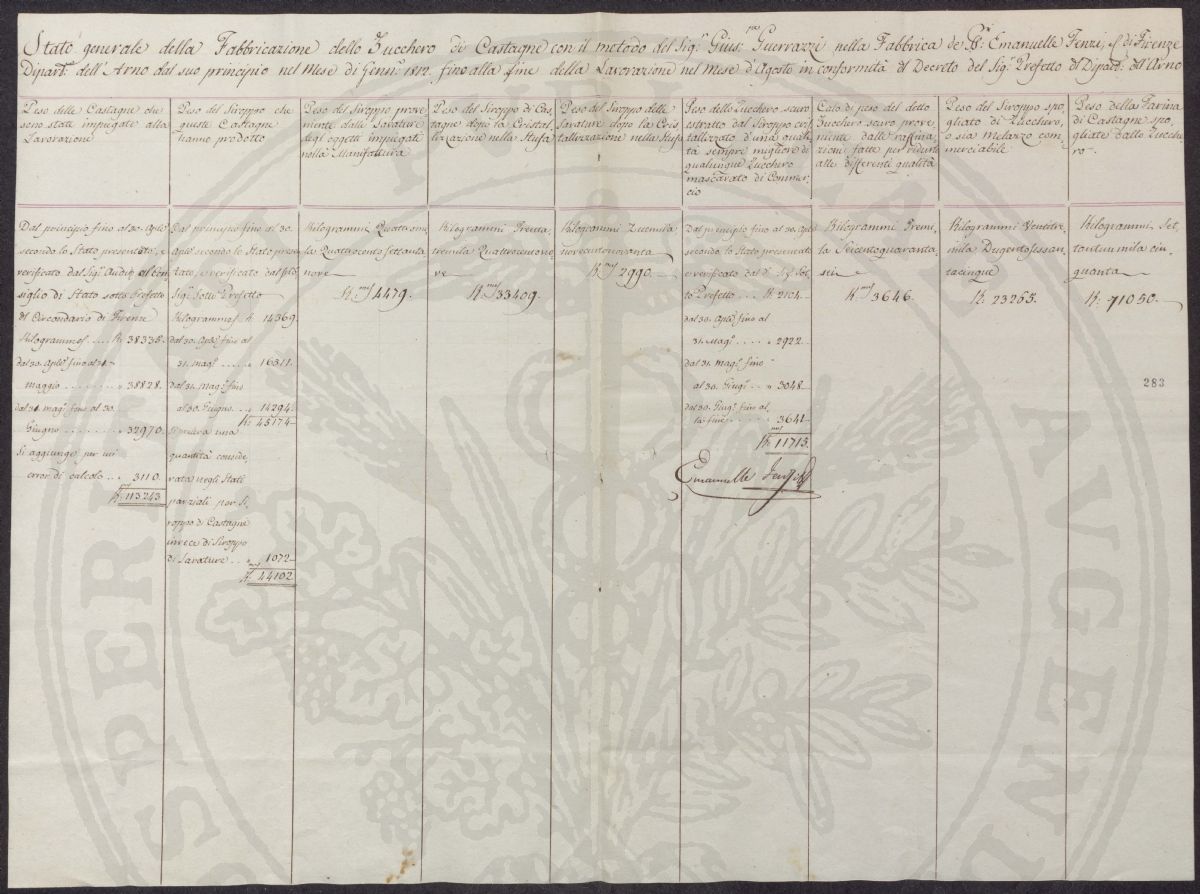 Stato generale della Fabbricazione dello Zucchero di Castagne con il metodo del Sig.r Gius.pe Guerrazzi nella Fabbrica de Emanuelle Fenzi, e di Firenze
Dipart.o dell'Arno dal suo principio nel Mese di Genn.o 1812. fino alla fine della Lavorazione nel mese d'Agosto in conformità del Decreto del Sig.r Prefetto del Dipart.o dell'Arno
Peso delle Castagne che
sono state impiegate alla
Lavorazione
Dal principio fino al 30. Aple
secondo lo Stato presentato, e
verificato dal Sig.r Audit.
siglio di Stato sotto Prefetto
del Circondario di Firenze
Kilogrammes .... K. 38335.
dal 30. Aple fino al 31
maggio ........ " 38828.
dal 31. mag.o fino al 30.
Giugno ...... " 32970.
Si aggiunge per un
error di calcolo .. " 3110.
K. 113243
Peso del Siroppo che
queste Castagne
hanno prodotto
Dal principio fino al 30.
Aple secondo lo Stato presen
tato, e verificato dal
Sig.r Sotto Prefetto
Kilogrammes K. 14569.
dal 30. Aple fino al
31. mag.o ...... " 16311.
dal 31. mag.o fino
al 30. Giugno .. " 14294.
K. 45174
una
quantità conside,
rata negli Stati
parziali per Si,
roppo di Castagne
invece di Siroppo
di Lavature .. " 1072
K. 44102
Peso del Siroppo prove
niente dalle Lavature
degl'oggetti impiegati
nella Manifattura
Kilogrammi Quattromi,
la Quattrocento settanta
nove
K. 4479.
Peso del Siroppo di Cas,
tagne dopo la Cristal,
lizzazione nella Stufa
Kilogrammi Trenta,
tremila Quattrocentono,
ve
K. 33409.
Peso del Siroppo delle
Lavature dopo la Cris
tallizzazione nella Stufa
Kilogrammi Duemila
novecentonovanta
K. 2990.
Peso dello Zucchero scuro
estratto dal Siroppo cris
tallizzato d'una quali
tà sempre migliore di
qualunque Zucchero
mascavato di Commer,
cio
Dal principio fino al 30. Aple
secondo lo Stato presentato
e verificato dal d.o Sig.r Sot,
to Prefetto ... K. 2104.
dal 30. Aple fino al
31. Mag.o .... " 2922.
dal 31. Mag.o fino
al 30. Giug.o .. " 3048.
dal 30. Giug.o fino al,
la fine ....... " 3641
K. 11715.
Emanuelle Fenzi
Calo di peso del detto
Zucchero scuro prove,
niente dalle raffina,
zioni fatte per ridurlo
alle differenti qualità
Kilogrammi Tremi,
la Seicentoquaranta,
sei
K. 3646.
Peso del Siroppo spo,
gliato di Zucchero,
o sia Melazzo com,
merciabile
Kilogrammi Ventitre,
mila Dugentosessan,
tacinque
K. 23265.
Peso della Farina
di Castagne spo,
gliate dallo Zucche,
ro.
Kilogrammi Set,
tantunmila cin,
quanta
K. 71050.
283